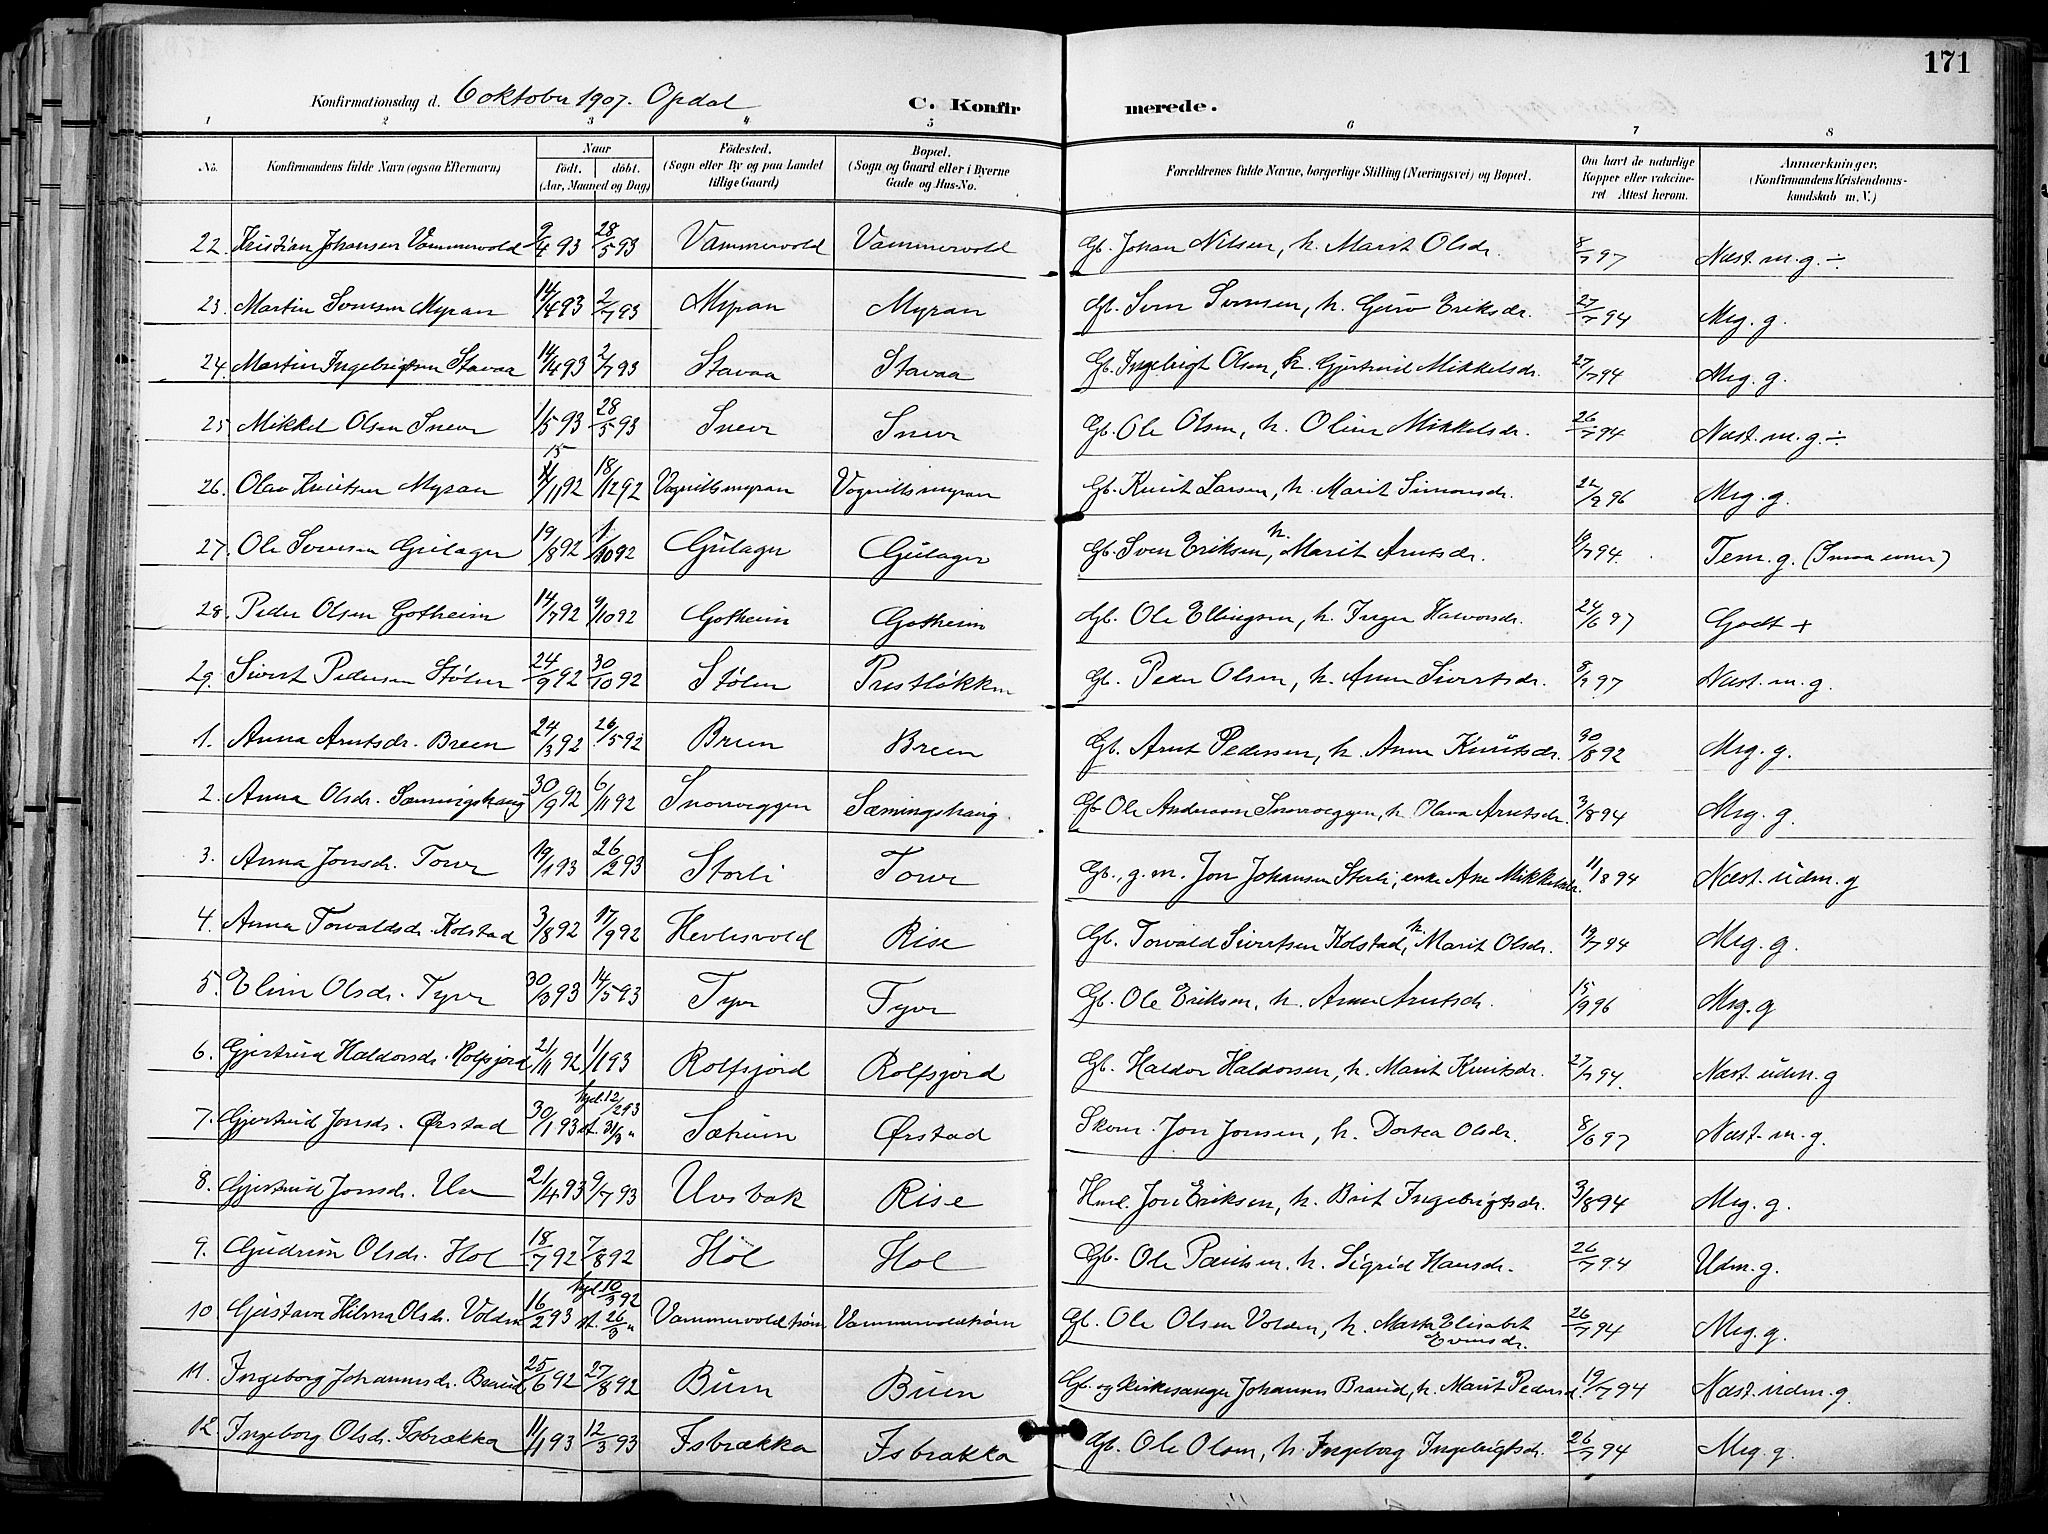 171
Konfirmationsdag d. 6 oktober 1907. Opdal C. Konfirmerede.
1 2 3 4 5 6 7 8
No. Konfirmandens fulde Navn (ogsaa Efternavn) Naar født. døbt. (Aar, Maaned og Dag) Fødested. (Sogn eller By og paa Landet tillige Gaard) Bopæl. (Sogn og Gaard eller i Byerne Gade og Hus-No. Forældrenes fulde Navne, borgerlige Stilling (Næringsvei) og Bopæl. Om havt de naturlige Kopper eller vakcineret Attest herom. Anmærkninger. (Konfirmandens Kristendomskundskab m. V.)
22. Kristian Johansen Vammervold 9/4 93 28/5 93 Vammervold Vammervold Gb. Johan Nilsen, h. Marit Olsdr. 8/7 97 Næst. m. g. ÷
23. Martin Svensen Myran 14/4 93 2/7 93 Myran Myran Gb. Sven Svensen, h. Guro Eriksdr. 27/7 94 Meg. g.
24. Martin Ingebrigtsen Stavaa 14/4 93 2/7 93 Stavaa Stavaa Gb. Ingebrigt Olsen, h. Gjertrud Mikkelsdr. 27/7 94 Meg. g.
25. Mikkel Olsen Snever 1/5 93 28/5 93 Snever Snever Gb. Ole Olsen, h. Oline Mikkelsdr. 26/7 94 Næst. m. g. ÷
26. Olav Knutsen Myran 15/11 92 18/12 92 Vognillsmyran Vognillsmyran Gb. Knut Larsen, h. Marit Simonsdr. 22/9 96 Meg. g.
27. Ole Svensen Gulager 19/8 92 1/10 92 Gulager Gulager Gb. Sven Eriksen, h. Marit Arntsdr. 6/7 94. Tem. g. (Smaa evner)
28. Peder Olsen Gotheim 14/7 92 9/10 92 Gotheim Gotheim Gb. Ole Ellingsen, h. Inger Halvorsdr. 24/6 97 Godt +
29. Sivert Pedersen Stølen 24/9 92 30/10 92 Stølen Prestløkken Gb. Peder Olsen, h. Anne Sivertsdr. 8/7 97 Næst. m. g.
1. Anna Arntsdr. Breen 24/3 92 26/5 92 Breen Breen Gb. Arnt Pedersen, h. Anne Knutsdr. 30/8 92 Meg. g.
2. Anna Olsdr. Sæmingshaug 30/9 92 6/11 92 Snoeveggen Sæmingshaug. Gb. Ole Anderssen Snoeveggen, h. Olava Arntsdr. 3/8 94 Meg. g.
3. Anna Jonsdr. Torve 19/1 93 26/2 93 Storli Torve Gb., g. m. Jon Johansen Storli, enke Ane Mikkelsdr. 11/8 94 Næst. udm. g
4. Anna Torvaldsdr. Kolstad 3/8 92 17/9 92 Hevlesvold Rise Gb. Torvald Sivertsen Kolstad, h. Marit Olsdr. 19/7 94 Meg. g.
5. Eline Olsdr. Tyvr 30/3 93 14/5 93 Tyvr Tyvr Gb. Ole Eriksen, h. Anne Arntsdr. 15/9 96 Meg. g
6. Gjertrud Haldorsdr. Rolfsjord 21/11 92 1/1 93 Rolfsjord Rolfsjord Gb. Haldor Haldorsen, h. Marit Knutsdr. 27/7 94. Næst. udm. g
7. Gjertrud Jonsdr. Ørstad 30/1 93 hjd. 12/2 93 st. 31/3 " Sætrum Ørstad Skom. Jon Jonsen, h. Dortea Olsdr. 8/6 97 Næst. m. g.
8. Gjertrud Jonsdr. Uv 21/4 93 9/7 93 Uvsbak Rise Husm. Jon Eriksen, h. Brit Ingebrigtsdr. 3/8 94 Meg. g.
9. Gudrun Olsdr. Hol 18/7 92 7/8 92 Hol Hol Gb. Ole Paulsen, h. Sigrid Hansdr. 26/7 94 Udm. g.
10. Gustava Hilma Olsdr. Volden 16/2 93 hjd. 10/3 92 st. 26/3 " Vammervoldtrøen Vammervoldtrøen Gb. Ole Olsen Volden, h. Marta Elisabet Evensdr. 26/7 94 Meg. g.
11. Ingeborg Johannesdr. Braud 25/6 92 27/8 92 Buen Buen Gb. og kirkesanger Johannes Braud, h. Marit Pedersd. 19/7 94 Næst. udm. g.
12. Ingeborg Olsdr. Isbrækka 11/1 93 12/3 93 Isbrækka Isbrækka Gb. Ole Olsen, h. Ingeborg Ingebrigtsdr. 26/7 94 Meg. g.